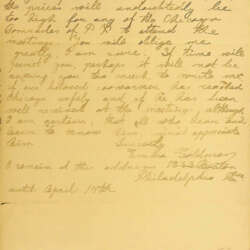 the prices will undoubtedly be
too high for any of the Chicago
Comrades of P. P. to attend the
meeting. You will oblige me
greatly, I am sure, if time will
permit you, perhaps it will not be
asking you too much to write me
if our beloved has reached
Chicago safely and if he has been
well received at the meeting, although
I am certain, that all who hear and
learn to know him, must appreciate
him.
Sincerely
Emma Goldman
I remain at the address
Philadelphia
until April 15th.